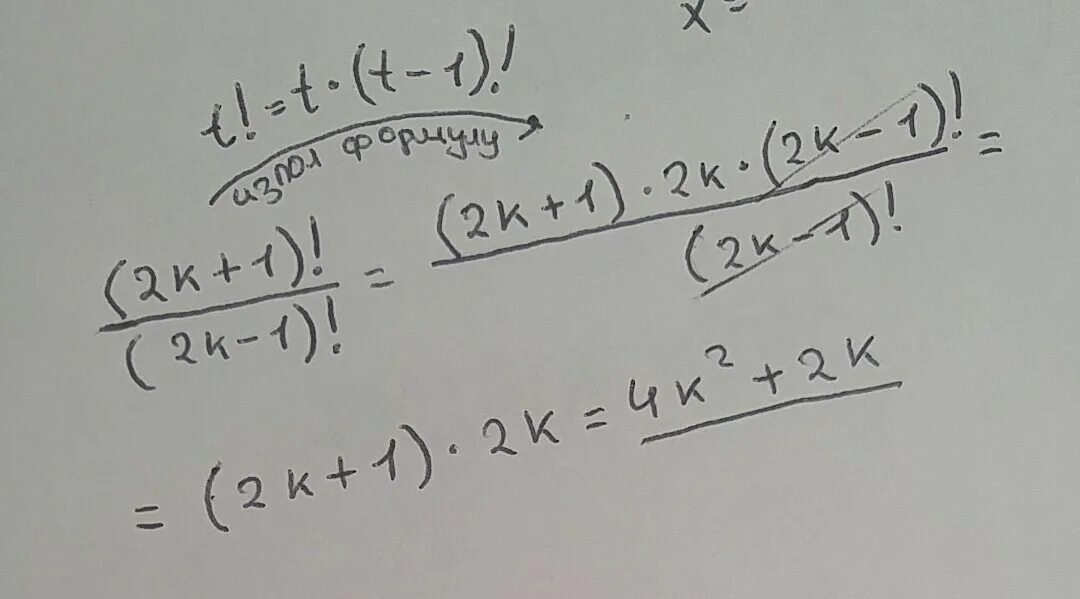 x=
t! = t · (t - 1)!
испол формулу
(2k+1)! / (2k-1)! = (2k+1) · 2k · (2k-1)! / (2k-1)! =
= (2k+1) · 2k = 4k² + 2k